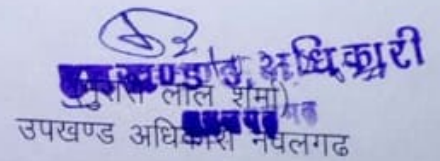 उपखण्ड अधिकारी
(मुरारी लाल शर्मा)
उपखण्ड अधिकारी नवलगढ